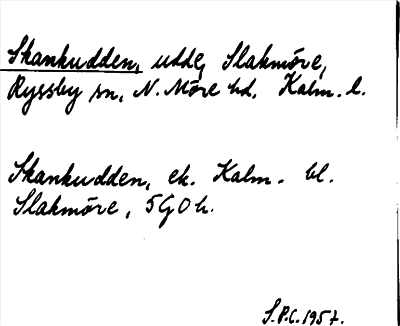 Skankudden, udde, Slakmöre,
Ryssby sn, N. Möre hd, Kalm. l.
Skankudden, ek. Kalm. bl.
Slakmöre, 5G0h.
S.P.C. 1957.